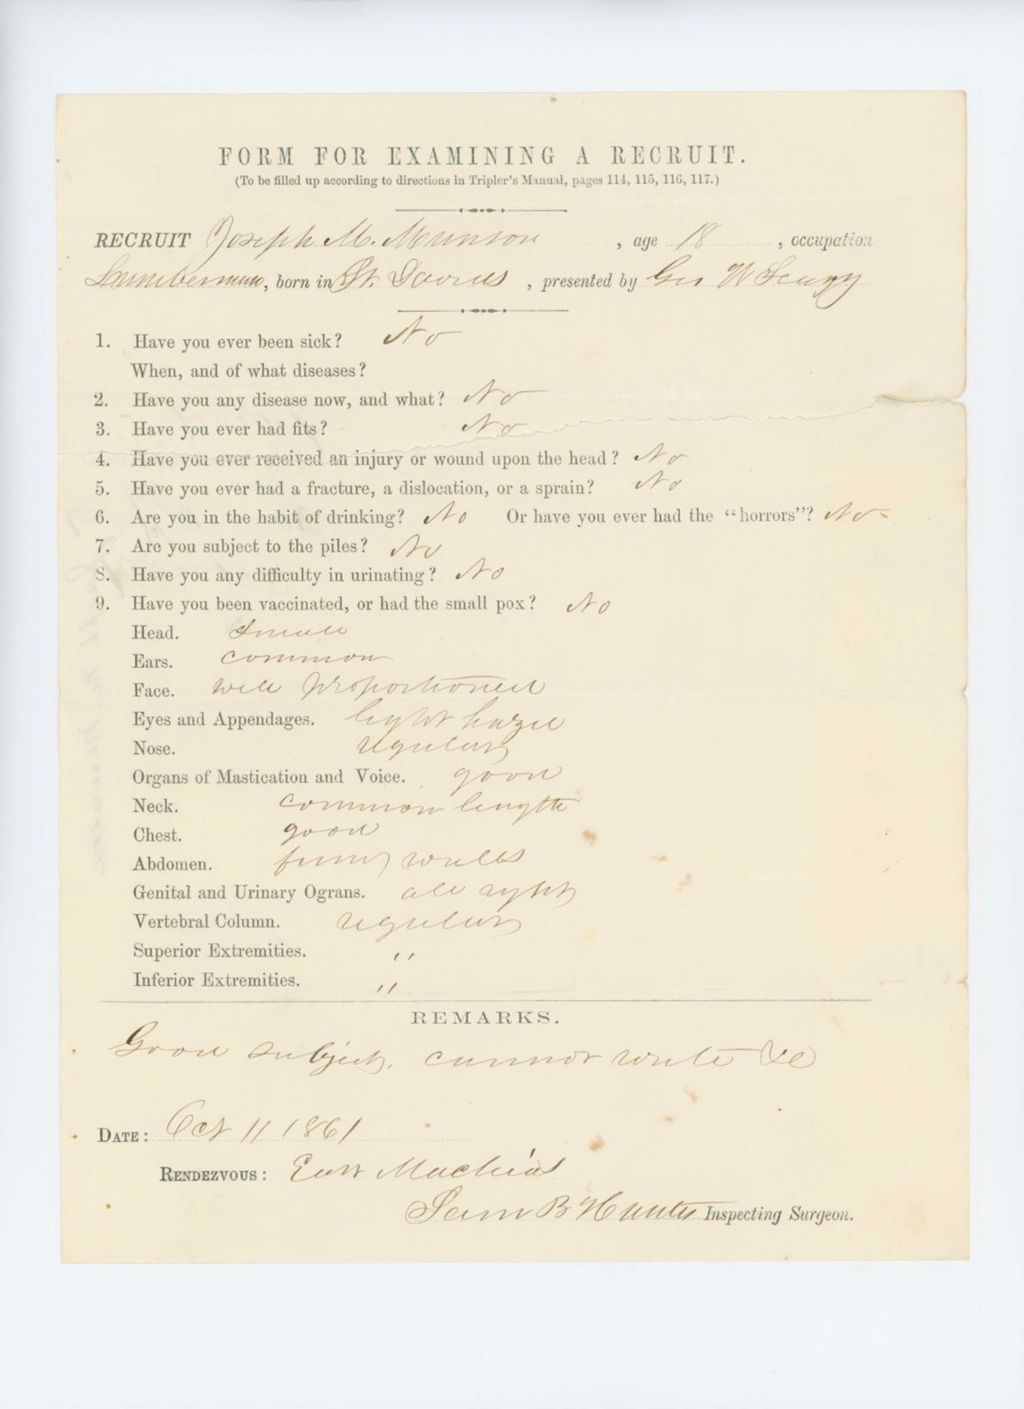 FORM FOR EXAMINING A RECRUIT.
(To be filled up according to directions in Tripler's Manual, pages 114, 115, 116, 117.)
RECRUIT Joseph M. Munson, age 18, occupation
Lumberman, born in St. Davids, presented by Geo W
1. Have you ever been sick? No
When, and of what diseases?
2. Have you any disease now, and what? No
3. Have you ever had fits? No
4. Have you ever received an injury or wound upon the head? No
5. Have you ever had a fracture, a dislocation, or a sprain? No
6. Are you in the habit of drinking? No Or have you ever had the "horrors"? No
7. Are you subject to the piles? No
8. Have you any difficulty in urinating? No
9. Have you been vaccinated, or had the small pox? No
Head. Small
Ears. common
Face. well proportioned
Eyes and Appendages. light hazel
Nose. regular
Organs of Mastication and Voice. good
Neck. common length
Chest. good
Abdomen. firm walls
Genital and Urinary Ograns. all right
Vertebral Column. regular
Superior Extremities. "
Inferior Extremities. "
REMARKS.
Good subject. cannot write &c
DATE: Oct 11 1861
RENDEZVOUS: East Machias
Sam B Hunter Inspecting Surgeon.